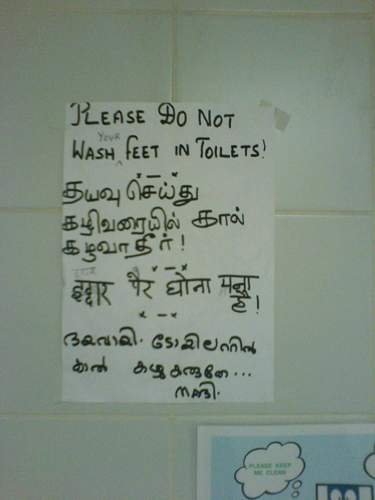 PLEASE DO NOT
WASH YOUR FEET IN TOILETS!
தயவு செய்து
கழிவரையில் கால்
கழுவாதீர்!
इद्दार पैर धोना मना
है!
ദയവായി ടോയിലററിൽ
കാൽ കഴുകരുതേ...
നന്ദി.
PLEASE KEEP
ME CLEAN